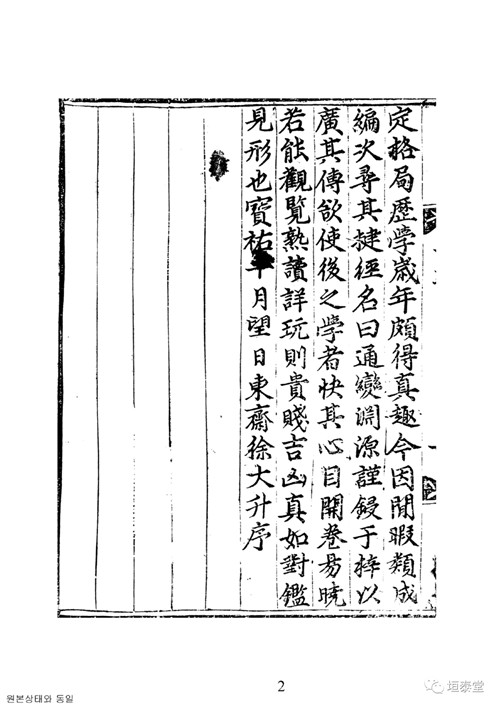 定格局歷學歲年頗得真趣今因閒暇類成
編次尋其捷徑名曰通變淵源謹鋟于梓以
廣其傳欲使後之學者快其心目開卷易曉
若能觀覽熟讀詳玩則貴賤吉凶真如對鑑
見形也寶祐十月望日東齋徐大升序
2
원본상태와 동일
垣泰堂